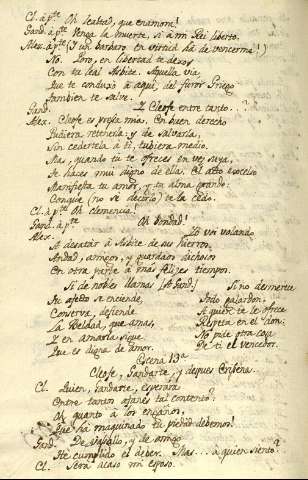 Cl. a pte. Oh lealtad, que enamora!
Gand. a pte. Venga la muerte, si a mi Rei liberto.
Alex. a pte. (I un barbaro en virtud ha de vencerme!)
No. Poro, en libertad te dexo
Con tu leal Asbite. Aquella via,
Que te conduxo a aqui, del furor Griego
Tambien te salve.
Gand. Y Cleofe entre tanto..?
Alex. Cleofe es presa mia. En buen derecho
Pudiera retenerla: y de salvarla,
Sin cedertela à ti, tubiera medio.
Mas, quando tu te ofreces en vez suya,
Te haces mui digno de ella. El acto excelso
Manifiesta tu amor, y tu alma grande:
Conque (no sé decirlo) te la cedo.
Cl. à pte. Oh clemencia!
Gand. à pte. Oh bondad!
Alex. Yo voi volando
A desatar à Asbite de sus hierros.
Andad, amigos, y guardaos dichosos
En otra parte à mas felizes tiempos.
Si de nobles llamas [A Gand.]
Tu afecto se enciende,
Conserva, defiende
La Beldad, que amas,
Y en amarla sigue
Que es digna de amor.
Si no desmerece
Todo galardon,
Si quien te le ofrece
Respeta en el don:
No pide otra cosa
De ti el vencedor.
Escena 13ª
Cleofe, Gandarte, y despues Erixena.
Cl. Quien, Gandarte, esperára
Entre tantos afanes tal contento?
Oh quanto à los engaños,
Que ha maquinado tu piedad debemos!
Gand. De vasallo, y de amigo
He cumplido el deber. Mas... à quien siento?
Cl. Será acaso mi esposo.